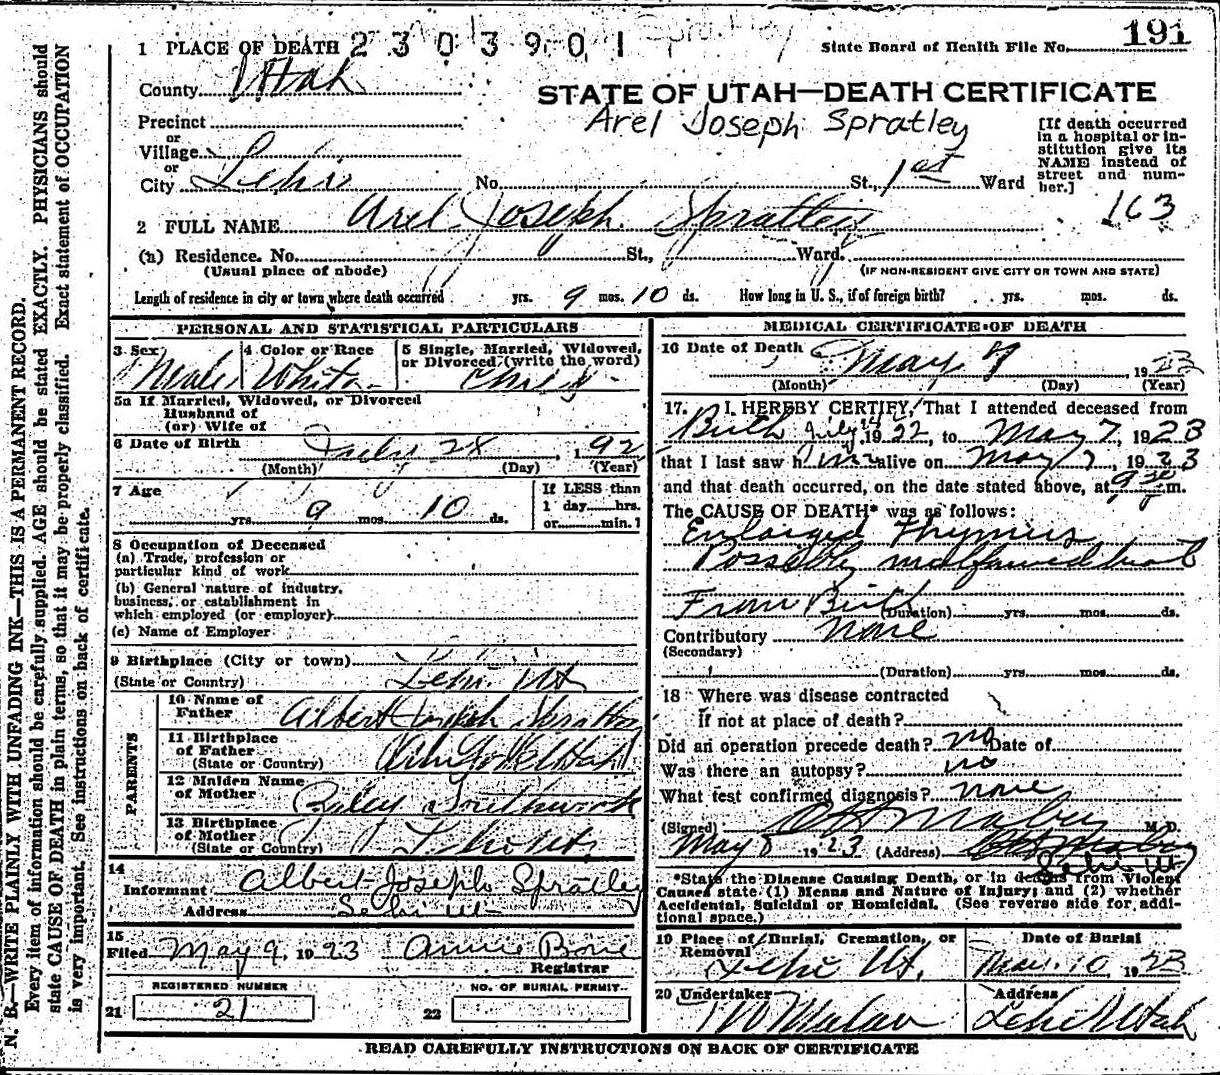 191
1 PLACE OF DEATH 2303901 Spratley State Board of Health File No.
County Utah
STATE OF UTAH—DEATH CERTIFICATE
Arel Joseph Spratley
Precinct
or
Village
or
City Lehi No. St., 1st Ward
[If death occurred in a hospital or in-
stitution give its
NAME instead of
street and num-
ber.]
163
2 FULL NAME Arel Joseph Spratley
(a) Residence. No. St., Ward.
(Usual place of abode) (IF NON-RESIDENT GIVE CITY OR TOWN AND STATE)
Length of residence in city or town where death occurred yrs. 9 mos. 10 ds. How long in U. S., if of foreign birth? yrs. mos. ds.
PERSONAL AND STATISTICAL PARTICULARS
3 Sex Male
4 Color or Race White
5 Single, Married, Widowed,
or Divorced (write the word)
5a If Married, Widowed, or Divorced
Husband of
(or) Wife of
6 Date of Birth July 28, 192
(Month) (Day) (Year)
7 Age
yrs. 9 mos. 10 ds.
If LESS than
1 day hrs.
or min.
8 Occupation of Deceased
(a) Trade, profession or
particular kind of work
(b) General nature of industry,
business, or establishment in
which employed (or employer)
(c) Name of Employer
9 Birthplace (City or town)
(State or Country) Lehi Ut
PARENTS
10 Name of
Father Albert Joseph Spratley
11 Birthplace
of Father
(State or Country)
12 Maiden Name
of Mother Southworth
13 Birthplace
of Mother
(State or Country) Lehi Ut.
14
Informant Albert Joseph Spratley
Address Lehi Ut
15
Filed May 9, 1923 Annie Bone
Registrar
REGISTERED NUMBER
21 21
NO. OF BURIAL PERMIT
22
MEDICAL CERTIFICATE OF DEATH
16 Date of Death May 7, 1923
(Month) (Day) (Year)
17. I HEREBY CERTIFY, That I attended deceased from
Birth July 1922, to May 7, 1923
that I last saw him alive on May 7, 1923
and that death occurred, on the date stated above, at 9 30 m.
The CAUSE OF DEATH* was as follows:
Enlarged Thymus
Possibly malformed heart
From Birth (Duration) yrs. mos. ds.
Contributory none
(Secondary)
(Duration) yrs. mos. ds.
18 Where was disease contracted
If not at place of death?
Did an operation precede death? no Date of
Was there an autopsy? no
What test confirmed diagnosis? none
(Signed) M. D.
May 8 1923 (Address)
Lehi Ut
*State the Disease Causing Death, or in deaths from Violent
Causes state (1) Means and Nature of Injury; and (2) whether
Accidental, Suicidal or Homicidal. (See reverse side for addi-
tional space.)
19 Place of Burial, Cremation, or
Removal
Lehi Ut.
Date of Burial
May 10, 1923
20 Undertaker
Address
Lehi Utah
READ CAREFULLY INSTRUCTIONS ON BACK OF CERTIFICATE
N. B.—WRITE PLAINLY WITH UNFADING INK—THIS IS A PERMANENT RECORD.
Every item of information should be carefully supplied. AGE should be stated EXACTLY. PHYSICIANS should
state CAUSE OF DEATH in plain terms, so that it may be properly classified. Exact statement of OCCUPATION
is very important. See instructions on back of certificate.